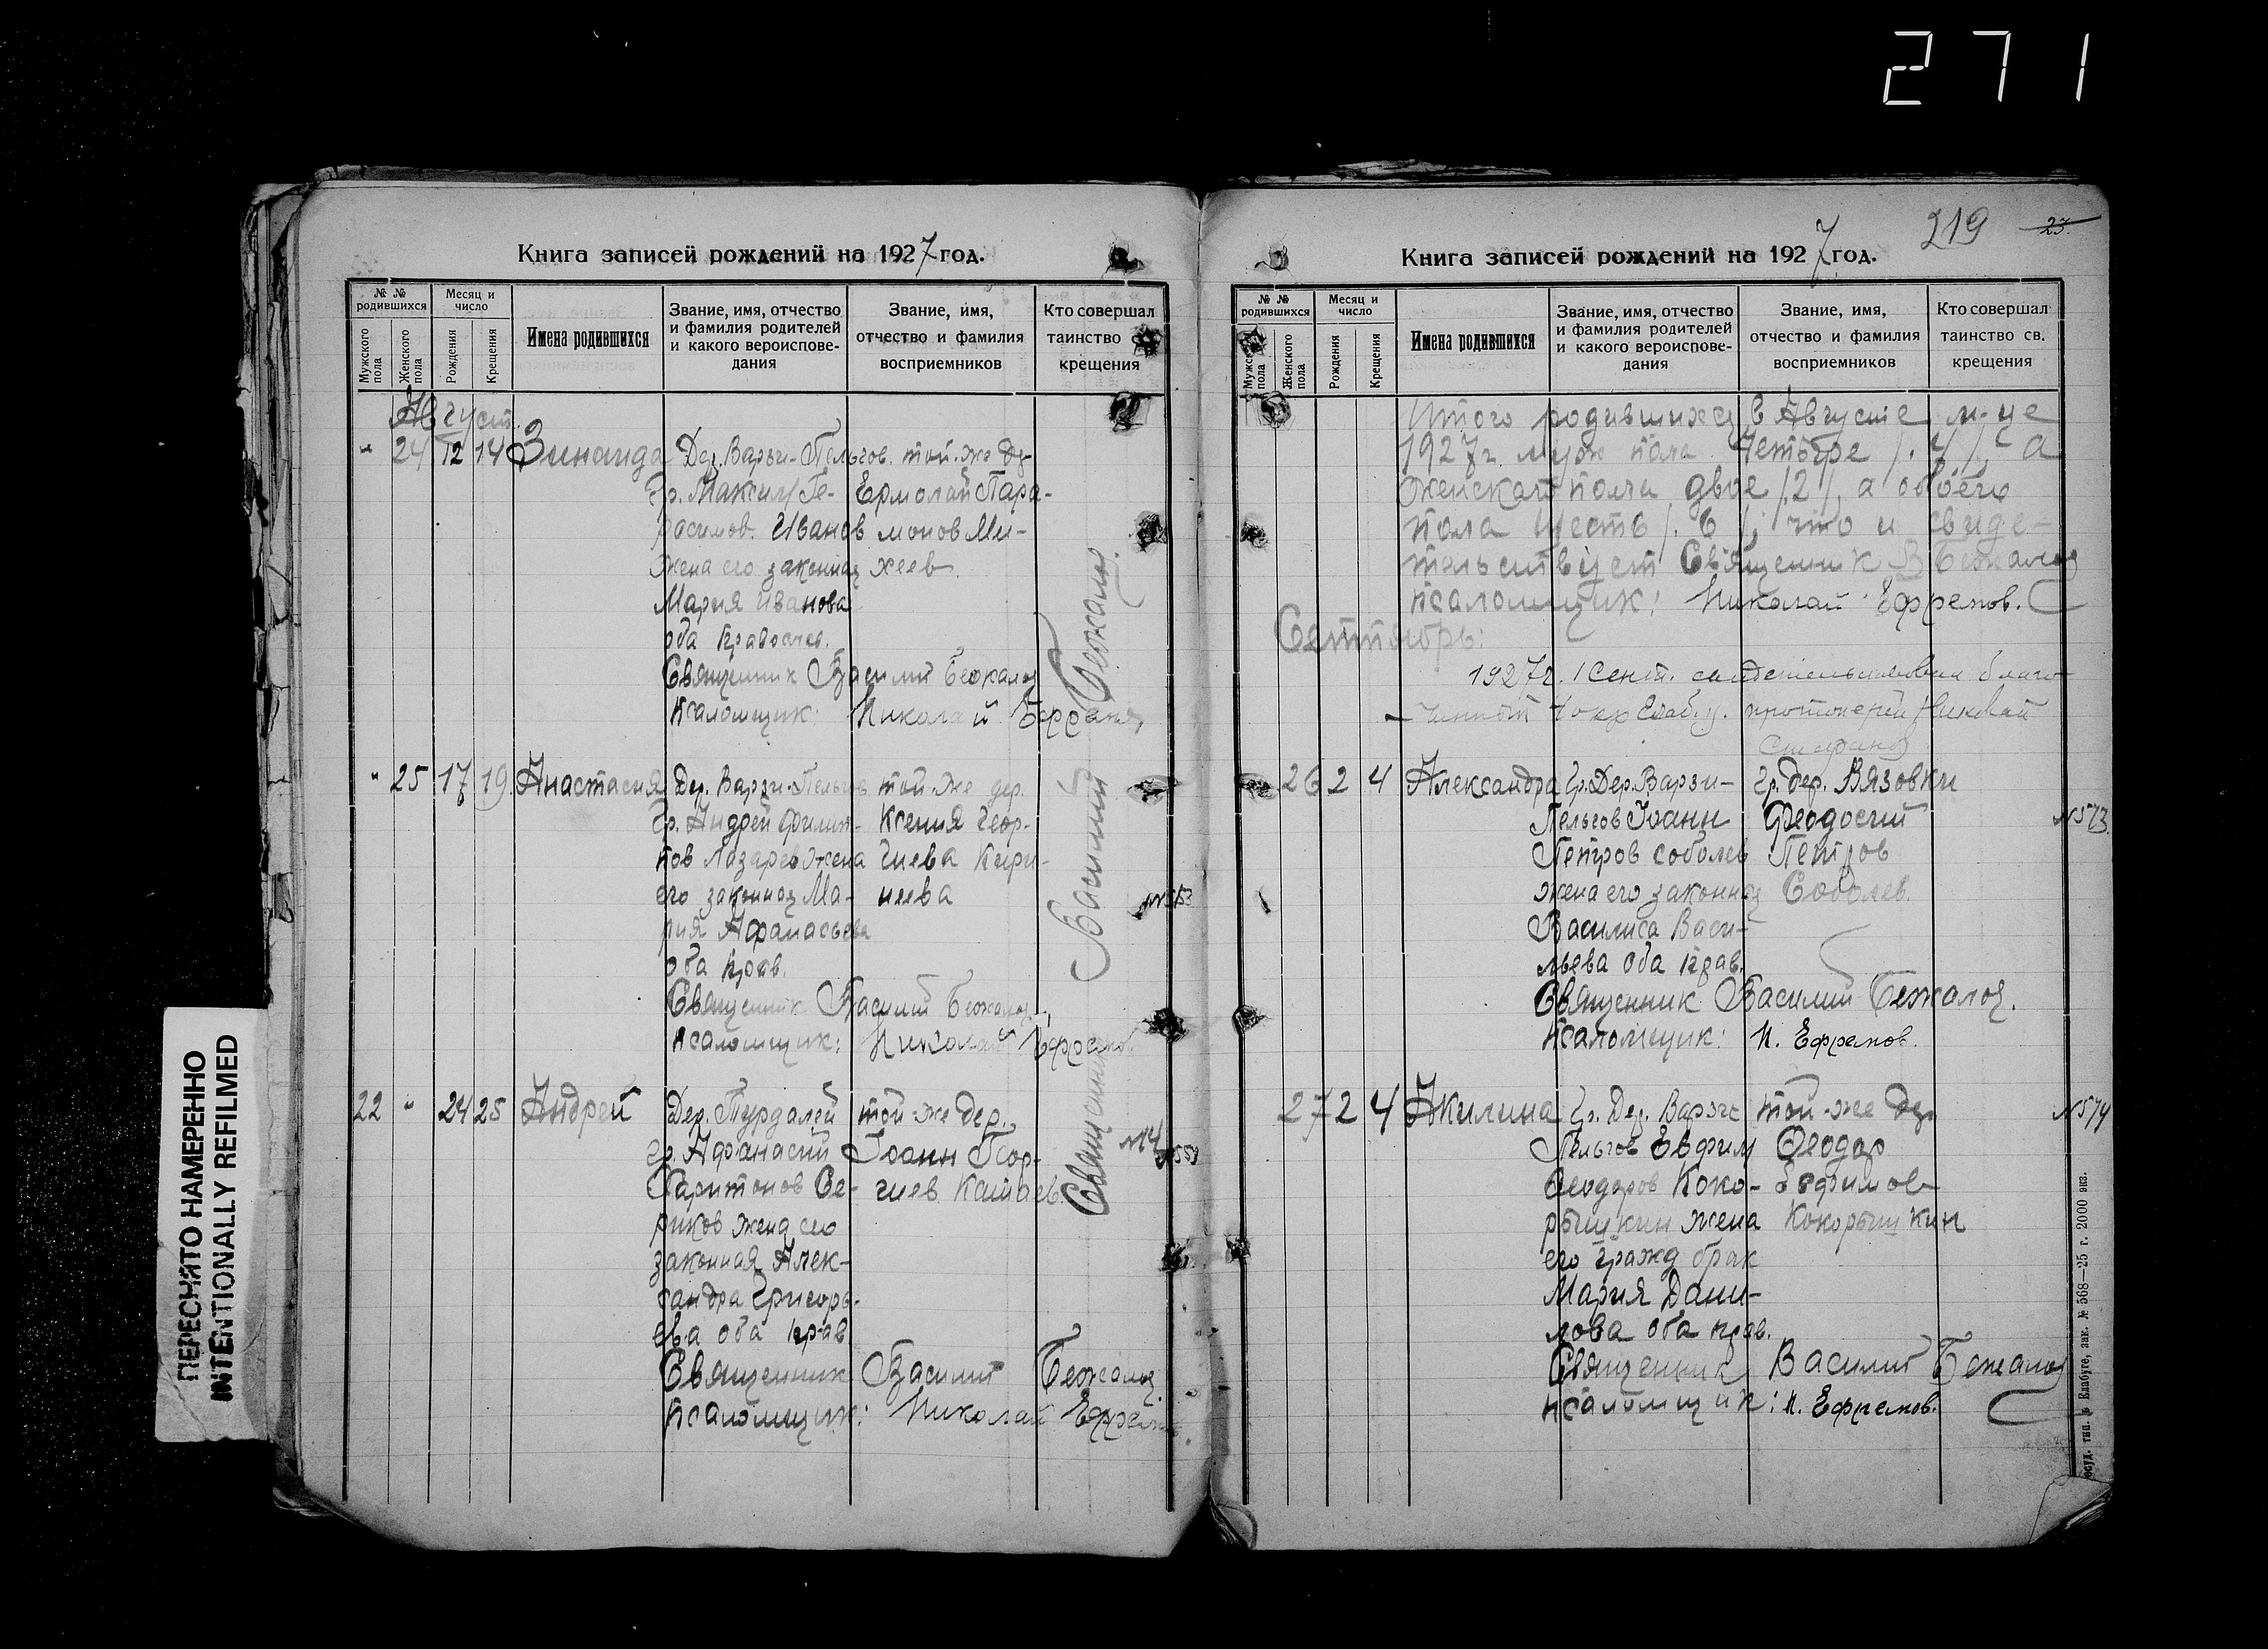 271
Книга записей рождений на 1927 год.
№ № родившихся
Мужского пола
Женского пола
Месяц и число
Рождения
Крещения
Имена родившихся
Звание, имя, отчество и фамилия родителей и какого вероисповедания
Звание, имя, отчество и фамилия восприемников
Кто совершал таинство крещения
Август.
" 24 12 14 Зинаида Дер. Варзи-Пельгов. той-же де-
Гр. Максим Ге- Ермолай Пара-
расимов. Иванов монов Ми-
жена его законная хеев.
Мария Иванова
оба православ.
Священник Василий Бежалоя
Псаломщик: Николай Ефремов
" 25 17 19 Анастасия Дер. Варзи-Пельгов той-же дер.
Гр. Андрей Филип- Ксения Геор-
пов Лазарев жена гиева Кири-
его законная Ма- неева
рия Афанасьева
оба прав.
Священник Василий
Псаломщик: Николай Ефремов
22 " 24 25 Андрей Дер. Турдалей той-же дер.
гр. Афанасий Иоанн Геор-
Харитонов Се- гиев
риков жена его
законная Алек-
сандра Григорь-
ева оба прав
Священник Василий
Псаломщик: Николай Ефремов
Священник Василий
№553
№559
219
23.
Книга записей рождений на 1927 год.
№ № родившихся
Мужского пола
Женского пола
Месяц и число
Рождения
Крещения
Имена родившихся
Звание, имя, отчество и фамилия родителей и какого вероисповедания
Звание, имя, отчество и фамилия восприемников
Кто совершал таинство св. крещения
Итого родившихся в Августе м-це
1927г. муж пола Четыре /.4/, а
женскаго пола двое /2/, а обоего
пола шесть /.6/, что и свиде-
тельствует Священник В
псаломщик: Николай Ефремов.
Сентябрь:
1927г. 1 Сент. свидетельствовал благо-
чинный 1 окр Елаб. у. протоиерей Николай
26 2 4 Александра Гр. Дер. Варзи- Гр. дер. Вязовки
Пельгов Иоанн Феодосий
Петров Соболев Петров
жена его законная Соболев.
Василиса Васи-
льева оба прав.
Священник Василий
псаломщик: Н. Ефремов.
№573
27 2 4 Акилина Гр. Дер. Варзи той-же дер
Пельгов Евфим Феодор
Феодоров Коко- Евфимов
рышкин жена Кокорышкин
его гражд брак
Мария Дани-
лова оба прав.
Священник Василий
псаломщик: Н. Ефремов.
№574
тип. в Елабуге, зак. № 568—25 г. 2000 экз.
ПЕРЕСНЯТО НАМЕРЕННО
INTENTIONALLY REFILMED